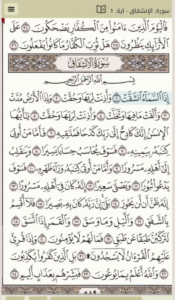 سورة: الإنشقاق - آية: 1
فَٱلْيَوْمَ ٱلَّذِينَ ءَامَنُوا۟ مِنَ ٱلْكُفَّارِ يَضْحَكُونَ ٣٤ عَلَى
ٱلْأَرَآئِكِ يَنظُرُونَ ٣٥ هَلْ ثُوِّبَ ٱلْكُفَّارُ مَا كَانُوا۟ يَفْعَلُونَ ٣٦
سُورَةُ الانْشِقَاقِ
بِسْمِ ٱللَّهِ ٱلرَّحْمَٰنِ ٱلرَّحِيمِ
إِذَا ٱلسَّمَآءُ ٱنشَقَّتْ ١ وَأَذِنَتْ لِرَبِّهَا وَحُقَّتْ ٢ وَإِذَا ٱلْأَرْضُ مُدَّتْ
٣ وَأَلْقَتْ مَا فِيهَا وَتَخَلَّتْ ٤ وَأَذِنَتْ لِرَبِّهَا وَحُقَّتْ ٥ يَٰٓأَيُّهَا
ٱلْإِنسَٰنُ إِنَّكَ كَادِحٌ إِلَىٰ رَبِّكَ كَدْحًا فَمُلَٰقِيهِ ٦ فَأَمَّا مَنْ أُوتِىَ
كِتَٰبَهُۥ بِيَمِينِهِۦ ٧ فَسَوْفَ يُحَاسَبُ حِسَابًا يَسِيرًا ٨ وَيَنقَلِبُ
إِلَىٰٓ أَهْلِهِۦ مَسْرُورًا ٩ وَأَمَّا مَنْ أُوتِىَ كِتَٰبَهُۥ وَرَآءَ ظَهْرِهِۦ ١٠ فَسَوْفَ
يَدْعُوا۟ ثُبُورًا ١١ وَيَصْلَىٰ سَعِيرًا ١٢ إِنَّهُۥ كَانَ فِىٓ أَهْلِهِۦ مَسْرُورًا ١٣
إِنَّهُۥ ظَنَّ أَن لَّن يَحُورَ ١٤ بَلَىٰٓ إِنَّ رَبَّهُۥ كَانَ بِهِۦ بَصِيرًا ١٥ فَلَآ أُقْسِمُ
بِٱلشَّفَقِ ١٦ وَٱلَّيْلِ وَمَا وَسَقَ ١٧ وَٱلْقَمَرِ إِذَا ٱتَّسَقَ ١٨
لَتَرْكَبُنَّ طَبَقًا عَن طَبَقٍ ١٩ فَمَا لَهُمْ لَا يُؤْمِنُونَ ٢٠ وَإِذَا قُرِئَ
عَلَيْهِمُ ٱلْقُرْءَانُ لَا يَسْجُدُونَ ۩ ٢١ بَلِ ٱلَّذِينَ كَفَرُوا۟ يُكَذِّبُونَ
٢٢ وَٱللَّهُ أَعْلَمُ بِمَا يُوعُونَ ٢٣ فَبَشِّرْهُم بِعَذَابٍ أَلِيمٍ ٢٤
٥٨٩